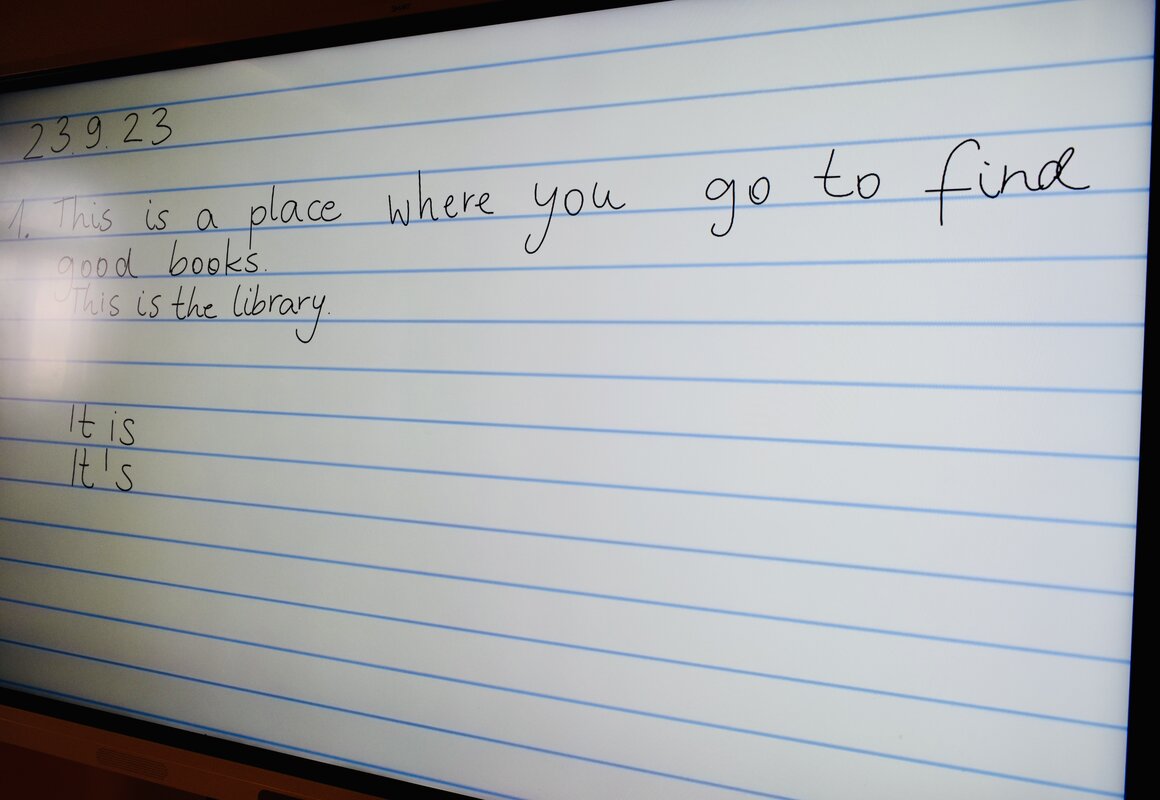 23.9.23
1. This is a place where you go to find
good books.
This is the library.
It is
It's